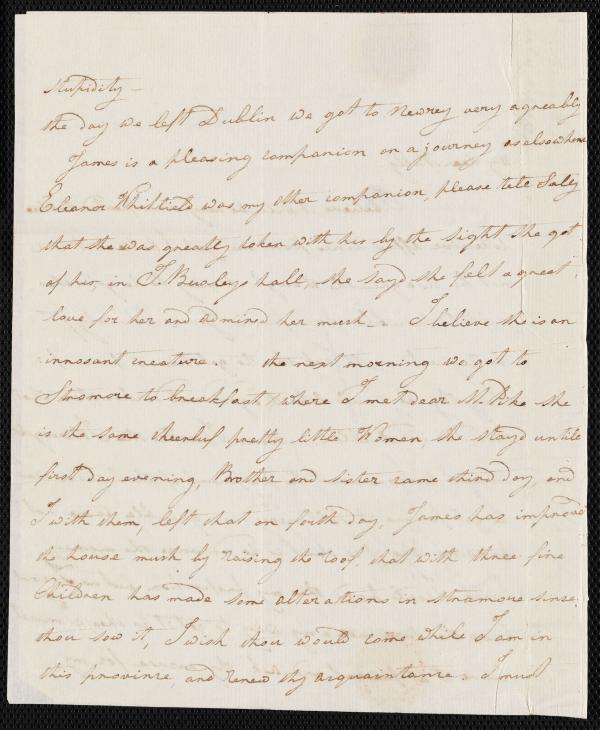 stupidity —
the day we left Dublin we got to Newrey very agreeably
James is a pleasing companion on a journey as elsewhere
Eleanor Whitfield was my other companion, please tele Sally
that she was greatly token with her by the sight she got
of her, in T. Bewleys hall, she sayd she felt a great
love for her and admired her much — I believe she is an
innosant creature. the next morning we got to
Stramore to breakfast, where I met dear M. Pike she
is the same cheerful pretty little Women, she stayd untile
first day evening, Brother and sister came third day, and
I with them, left that on forth day, James has improved
the house much by raising the roof, that with three fine
Children has made some alterations in stramore sinse
thou sow it, I wish thou would come while I am in
this provinse, and renew thy acquaintanse. I must